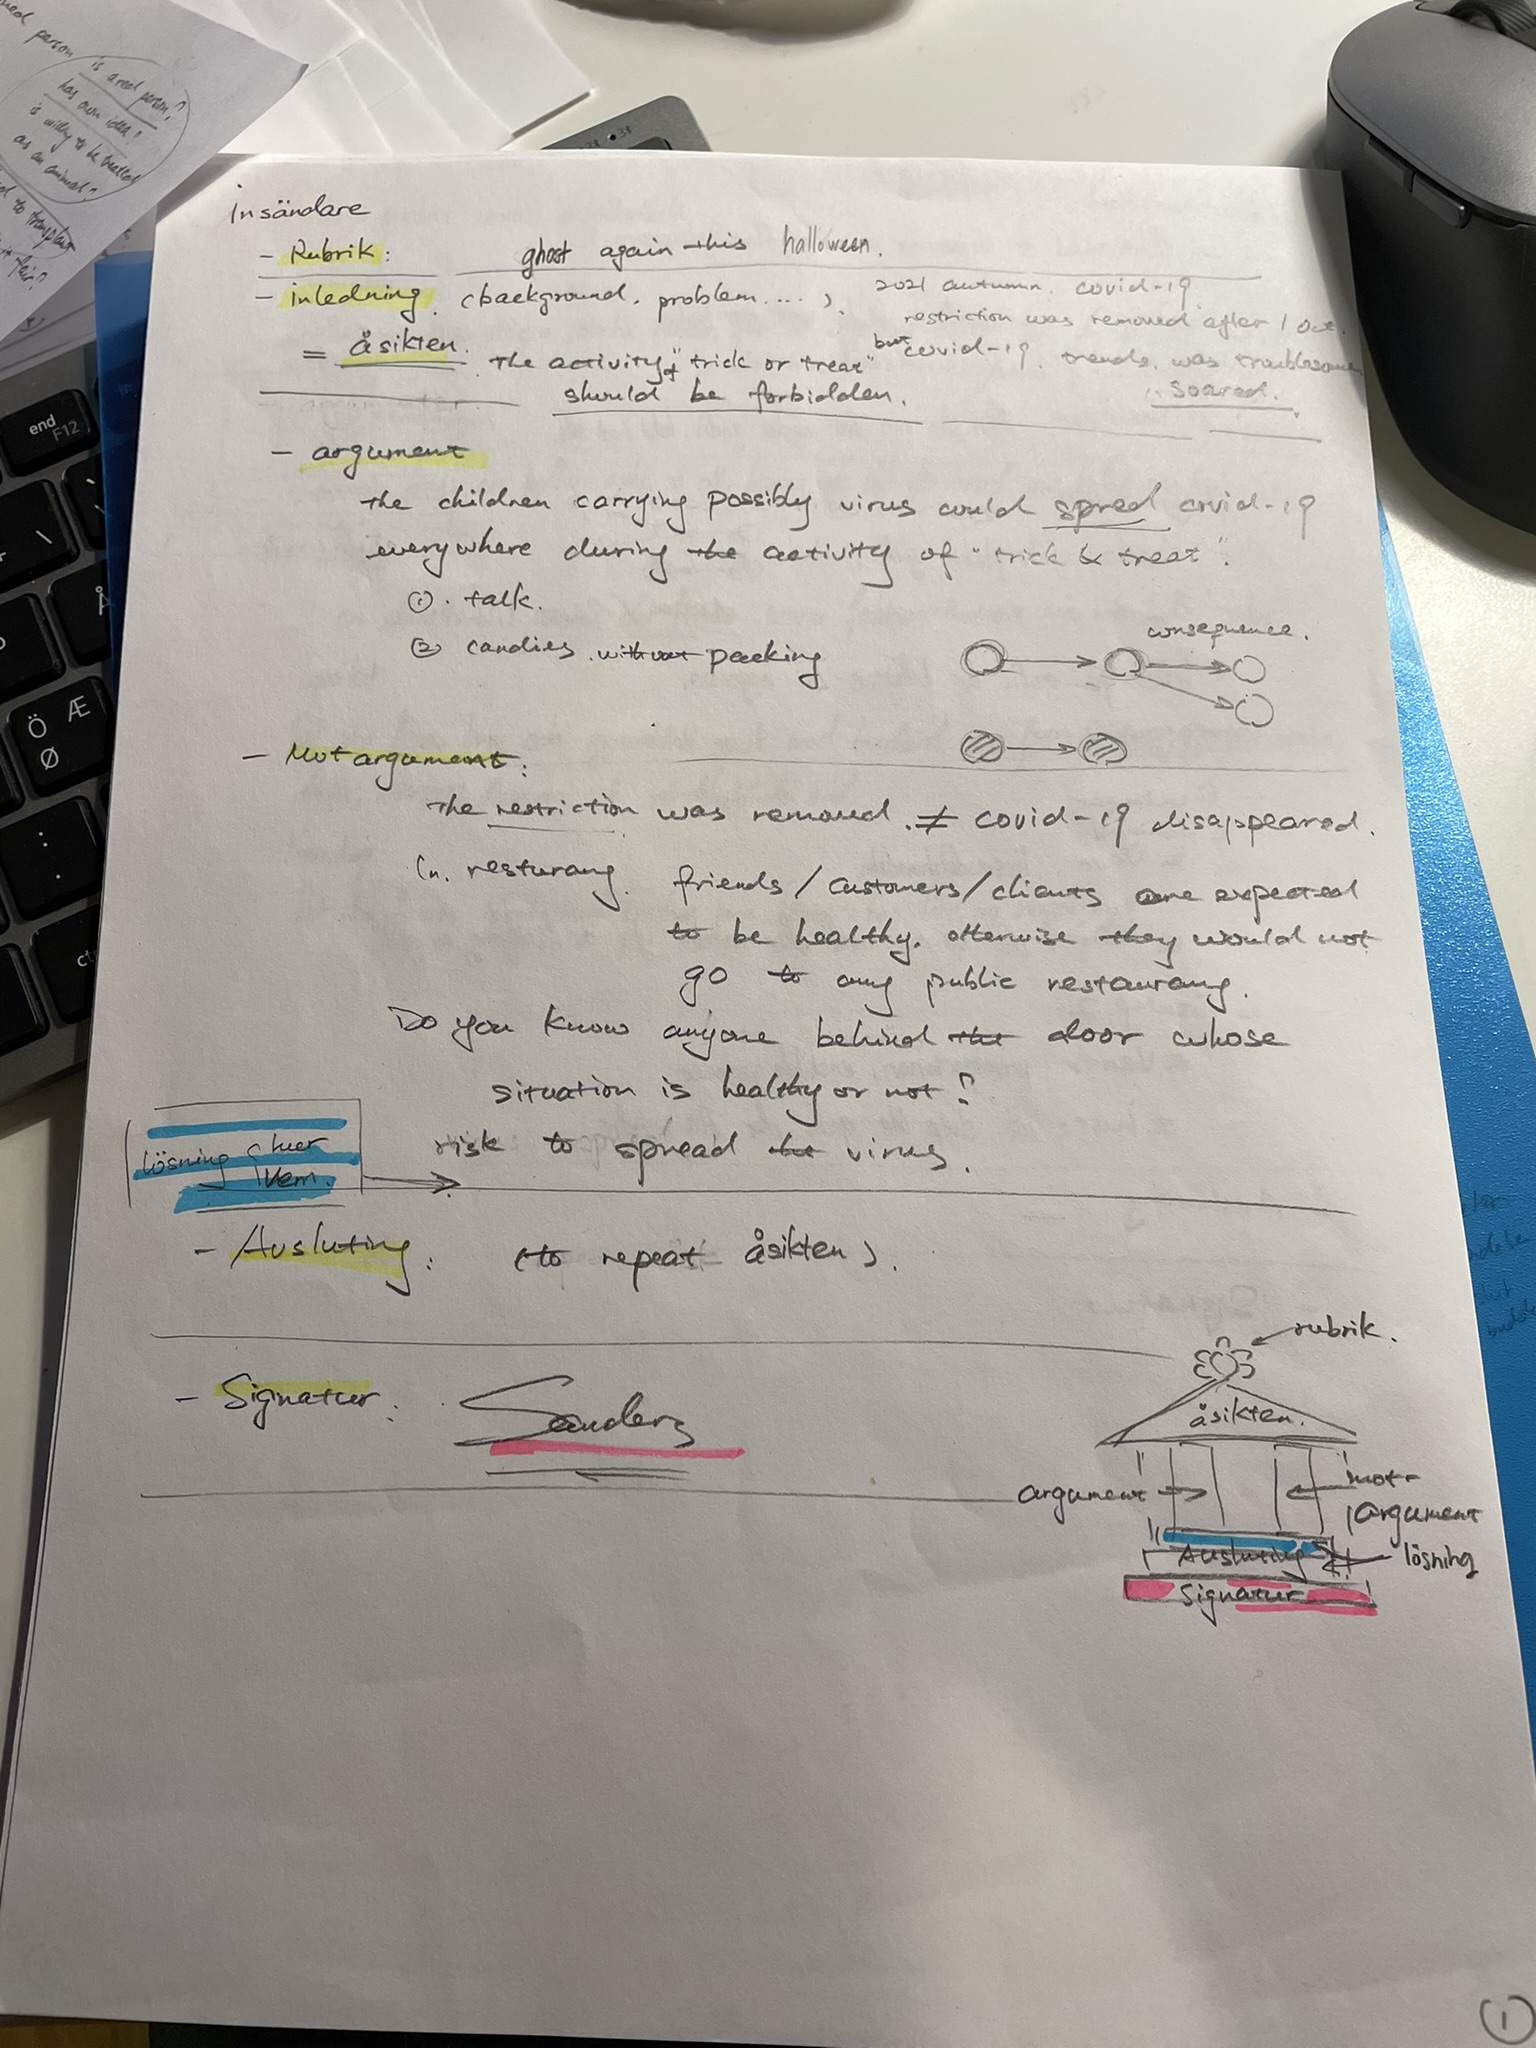 person
is a real person?
has own idea?
is willing to be treated
as an animal?
to transplant
fair?
Insändare
- Rubrik: ghost again this halloween.
- inledning. (background, problem....).
2021 autumn. covid-19
restriction was removed after 1 Oct.
but covid-19 trends was troublesome
soared.
= åsikten. The activity of "trick or treat"
should be forbidden.
- argument
the children carrying possibly virus could spred covid-19
everywhere during the activity of "trick & treat".
① . talk.
② candies. without packing
consequence.
- Motargument:
The restriction was removed. ≠ covid-19 disappeared.
In. resturang. friends/customers/clients are expected
to be healthy. otherwise they would not
go to any public restaurang.
Do you know anyone behind the door whose
situation is healthy or not?
risk to spread the virus.
lösning { hur
vem.
- Avsluting: (to repeat åsikten).
- Signatur: Sanders
rubrik.
åsikten.
argument
mot-
argument
Avsluting
lösning
Signatur
1
end
F12
Å
Ö Æ
Ø